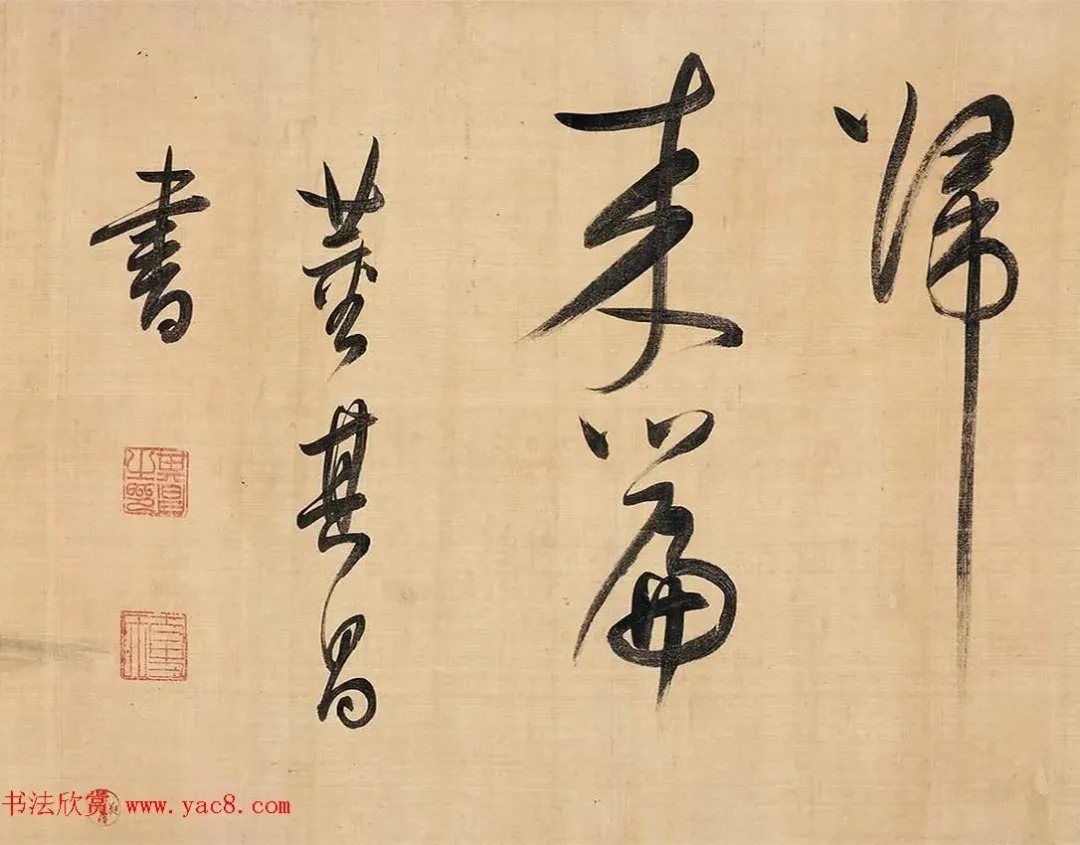 歸
来篇
董其昌
書
书法欣赏 www.yac8.com